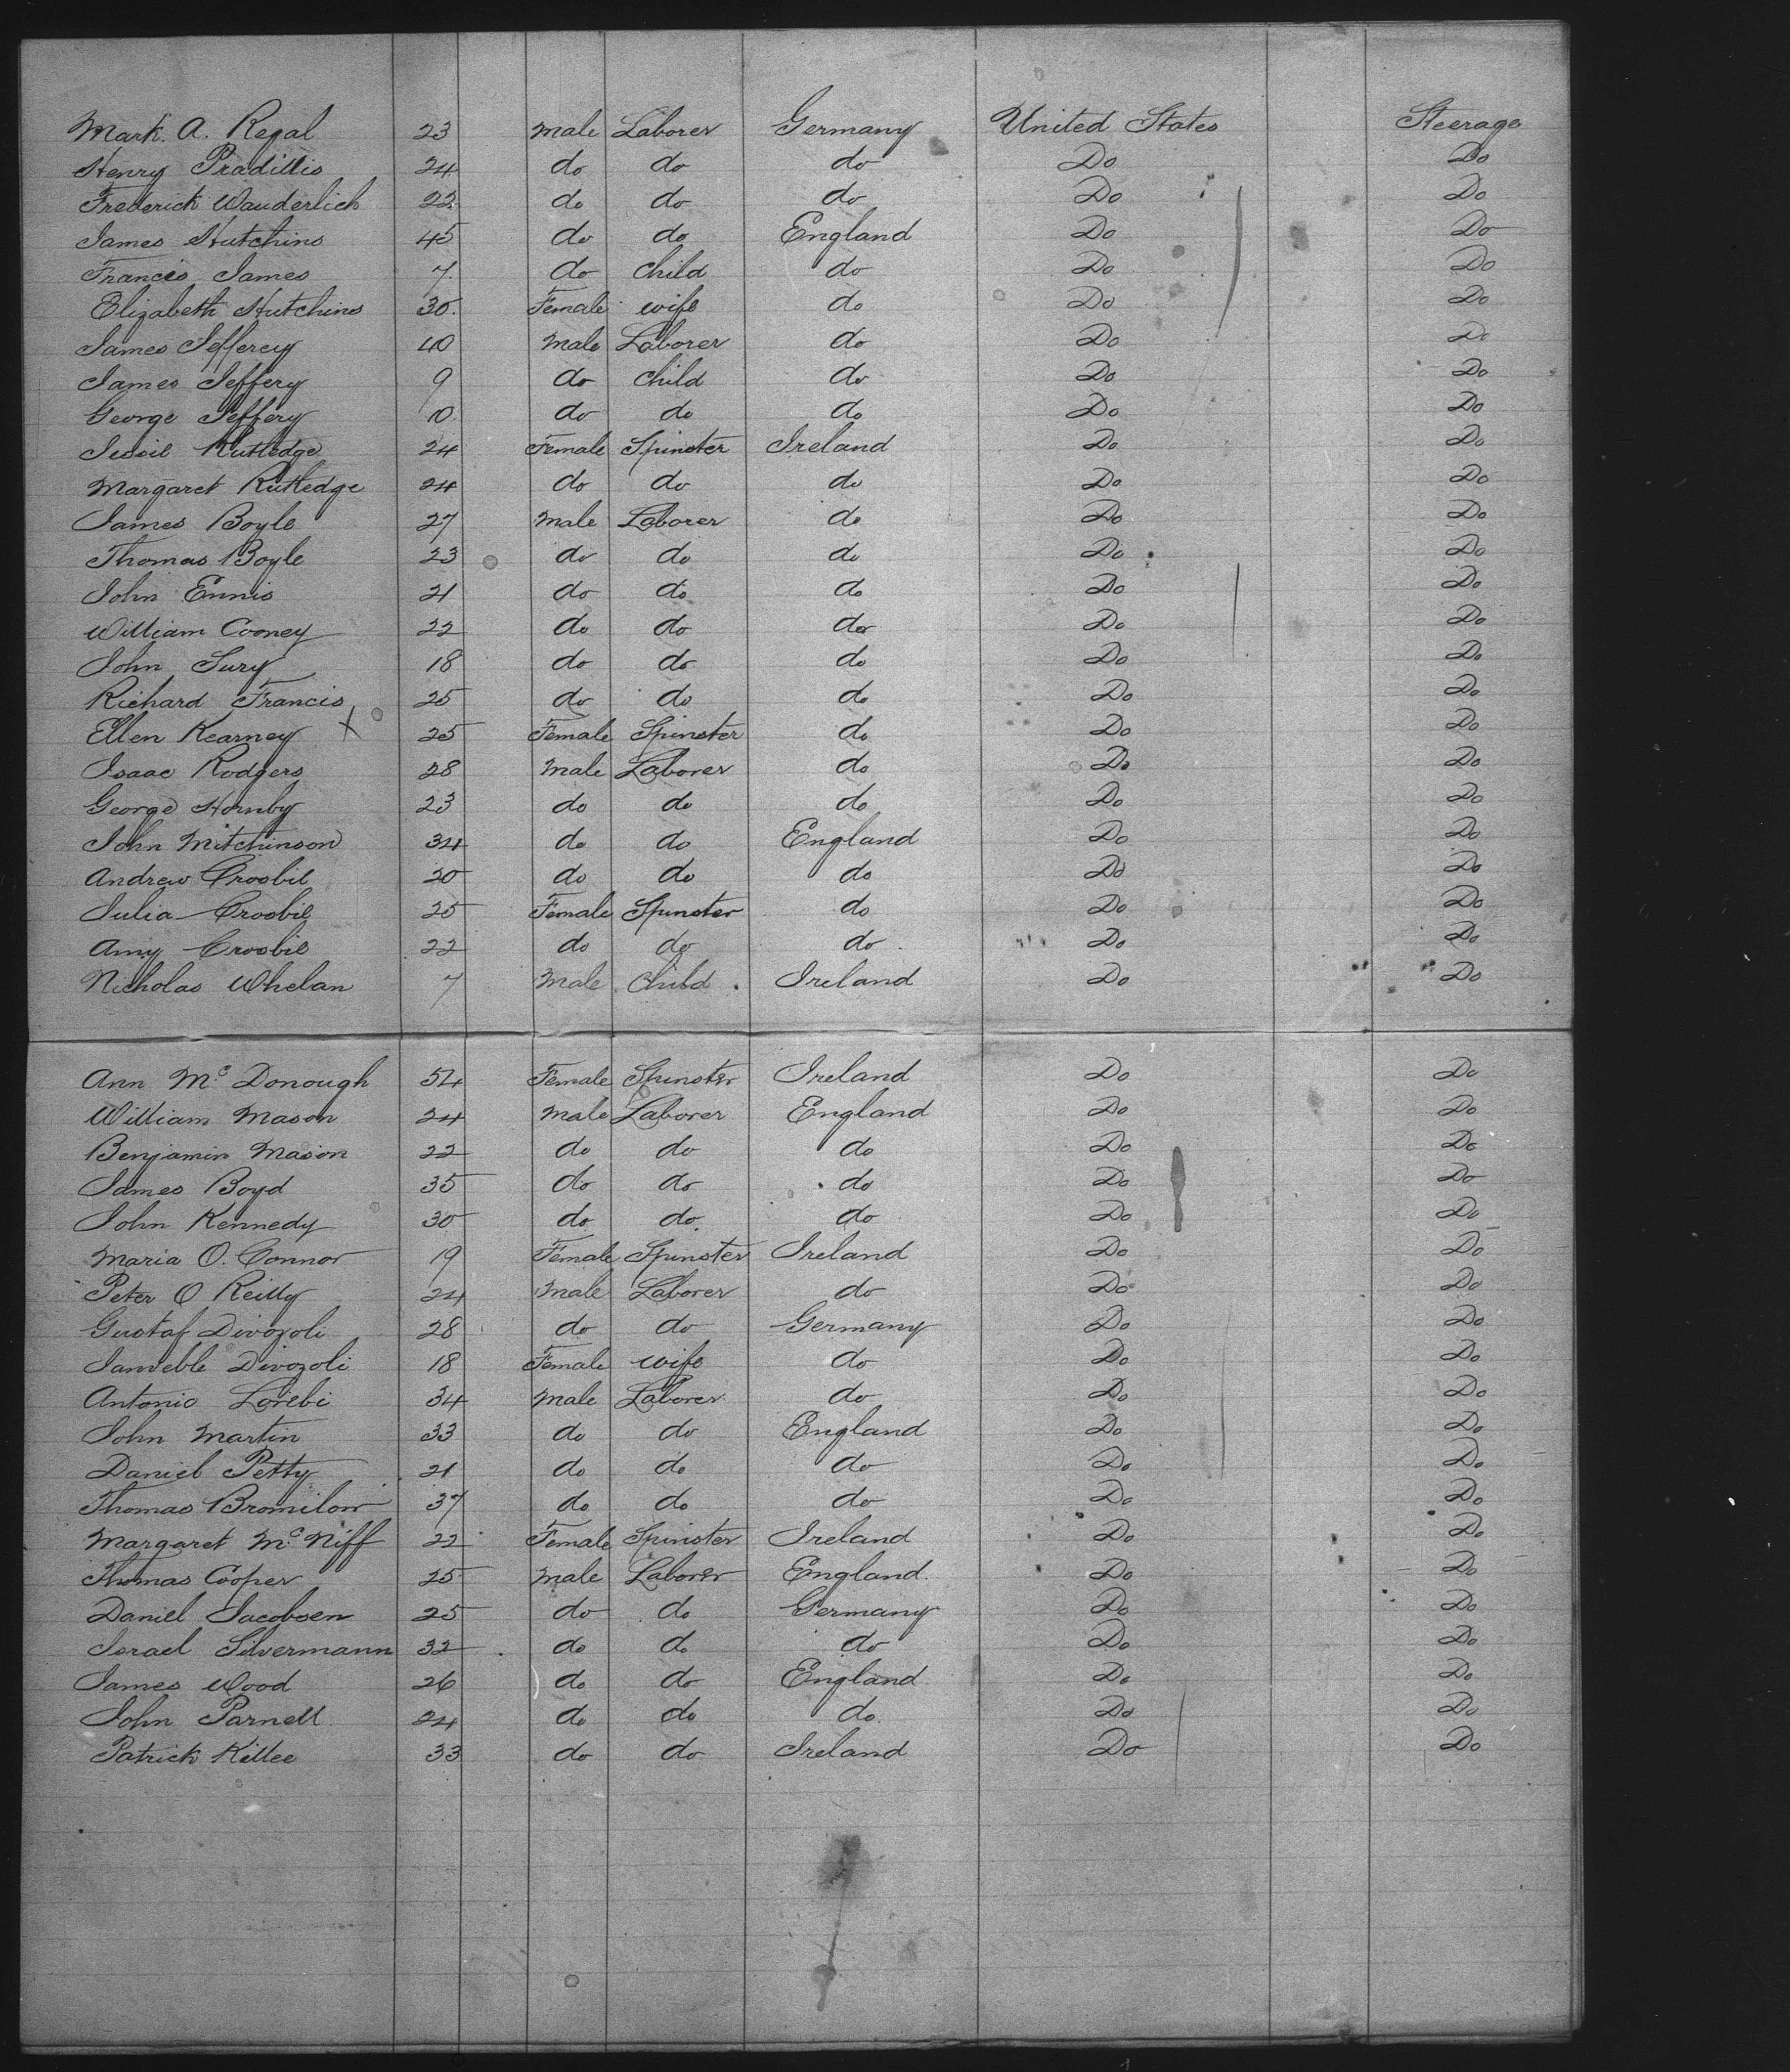 Mark. A. Regal 23 Male Laborer Germany United States Steerage
Henry Pradillis 24 do do do Do Do
Frederick Wauderlich 22 do do do Do Do
James Hutchins 45 do do England Do Do
Francis James 7 do child do Do Do
Elizabeth Hutchins 30 Female wife do Do Do
James Jefferey 40 Male Laborer do Do Do
James Jeffery 9 do child do Do Do
George Jeffery 10 do do do Do Do
Jessie Rutledge 24 Female Spinster Ireland Do Do
Margaret Rutledge 24 do do do Do Do
James Boyle 27 Male Laborer do Do Do
Thomas Boyle 23 do do do Do Do
John Ennis 21 do do do Do Do
William Cooney 22 do do do Do Do
John 18 do do do Do Do
Richard Francis 25 do do do Do Do
Ellen Kearney X 25 Female Spinster do Do Do
Isaac Rodgers 28 Male Laborer do Do Do
George Hornby 23 do do do Do Do
John Mitchinson 34 do do England Do Do
Andrew Crosbie 20 do do do Do Do
Julia Crosbie 25 Female Spinster do Do Do
Amy Crosbie 22 do do do Do Do
Nicholas Whelan 7 Male Child Ireland Do Do
Ann Mc Donough 54 Female Spinster Ireland Do Do
William Mason 24 Male Laborer England Do Do
Benjamin Mason 22 do do do Do Do
James Boyd 35 do do do Do Do
John Kennedy 30 do do do Do Do
Maria O. Connor 19 Female Spinster Ireland Do Do
Peter O Reilly 24 Male Laborer do Do Do
Gustaf Divozoli 28 do do Germany Do Do
Divozoli 18 Female wife do Do Do
Antonio Lorebi 34 Male Laborer do Do Do
John Martin 33 do do England Do Do
Daniel Petty 21 do do do Do Do
Thomas Bromilow 37 do do do Do Do
Margaret Mc Niff 22 Female Spinster Ireland Do Do
Thomas Cooper 25 Male Laborer England Do Do
Daniel Jacobsen 25 do do Germany Do Do
Israel Silvermann 32 do do do Do Do
James Wood 26 do do England Do Do
John Parnell 24 do do do Do Do
Patrick Killee 33 do do Ireland Do Do